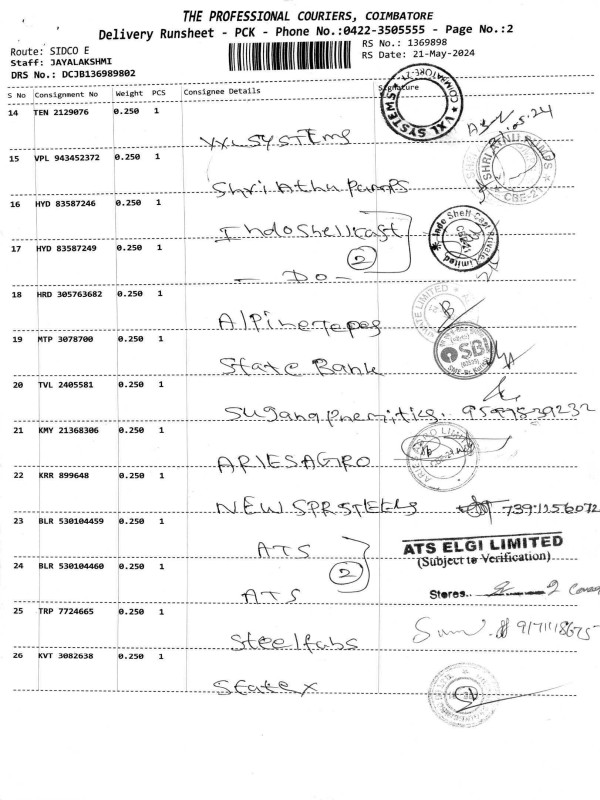 THE PROFESSIONAL COURIERS, COIMBATORE
Delivery Runsheet - PCK - Phone No.:0422-3505555 - Page No.:2
Route: SIDCO E
Staff: JAYALAKSHMI
DRS No.: DCJB136989802
RS No.: 1369898
RS Date: 21-May-2024
S No Consignment No Weight PCS Consignee Details Signature
14 TEN 2129076 0.250 1 VXL SYSTEMS
VXL SYSTEMS * COIMBATORE-21
15 VPL 943452372 0.250 1 Shri Athu Pumps
CBE-21
16 HYD 83587246 0.250 1 Indo Shell Cast
Indo Shell Cast Private Limited
17 HYD 83587249 0.250 1 - DO -
2
18 HRD 305763682 0.250 1 Alpine Tapes
19 MTP 3078700 0.250 1 State Bank
SBI
20 TVL 2405581 0.250 1
21 KMY 21368306 0.250 1 ARIES AGRO
ARIES AGRO LIMITED
22 KRR 899648 0.250 1 NEW SPR STEELS
7391256072
23 BLR 530104459 0.250 1 ATS
ATS ELGI LIMITED
(Subject to Verification)
24 BLR 530104460 0.250 1 ATS
2
Stores..
25 TRP 7724665 0.250 1 Steelfabs
26 KVT 3082638 0.250 1 Statex